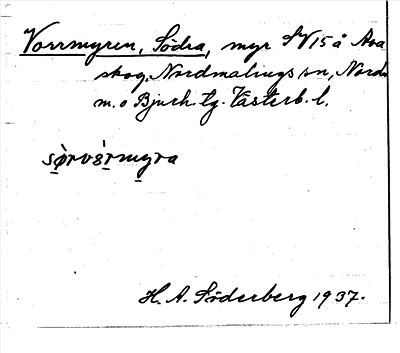 Vorrmyren, Södra, myr SV 15 å Ava
skog, Nordmalings sn, Nordm.
m. o Bjurh. tg. Västerb. l.
sørvɜrmyra
H. A. Söderberg 1937.